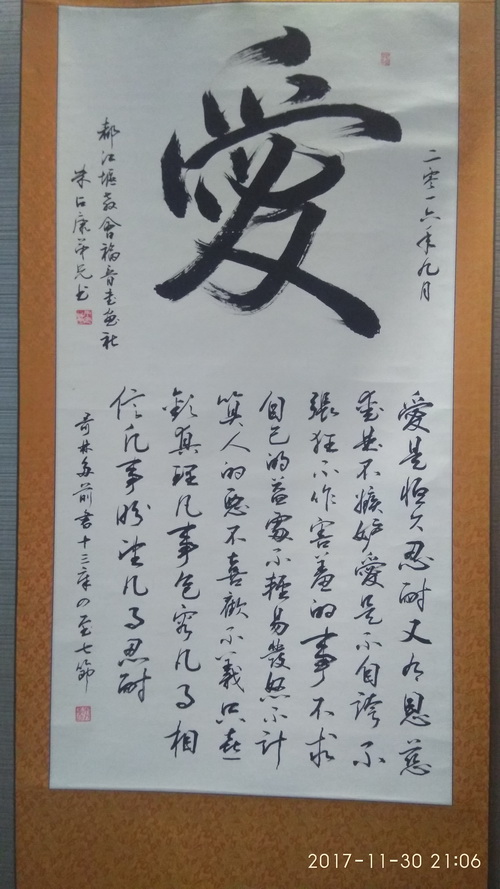 愛
二零一六年九月
愛是恒久忍耐又有恩慈
愛是不嫉妒愛是不自誇不
張狂不作害羞的事不求
自己的益處不輕易發怒不計
算人的惡不喜歡不義只喜
歡真理凡事包容凡事相
信凡事盼望凡事忍耐
哥林多前书十三章四至七節
都江堰教會福音书画社
朱占康弟兄书
2017-11-30 21:06